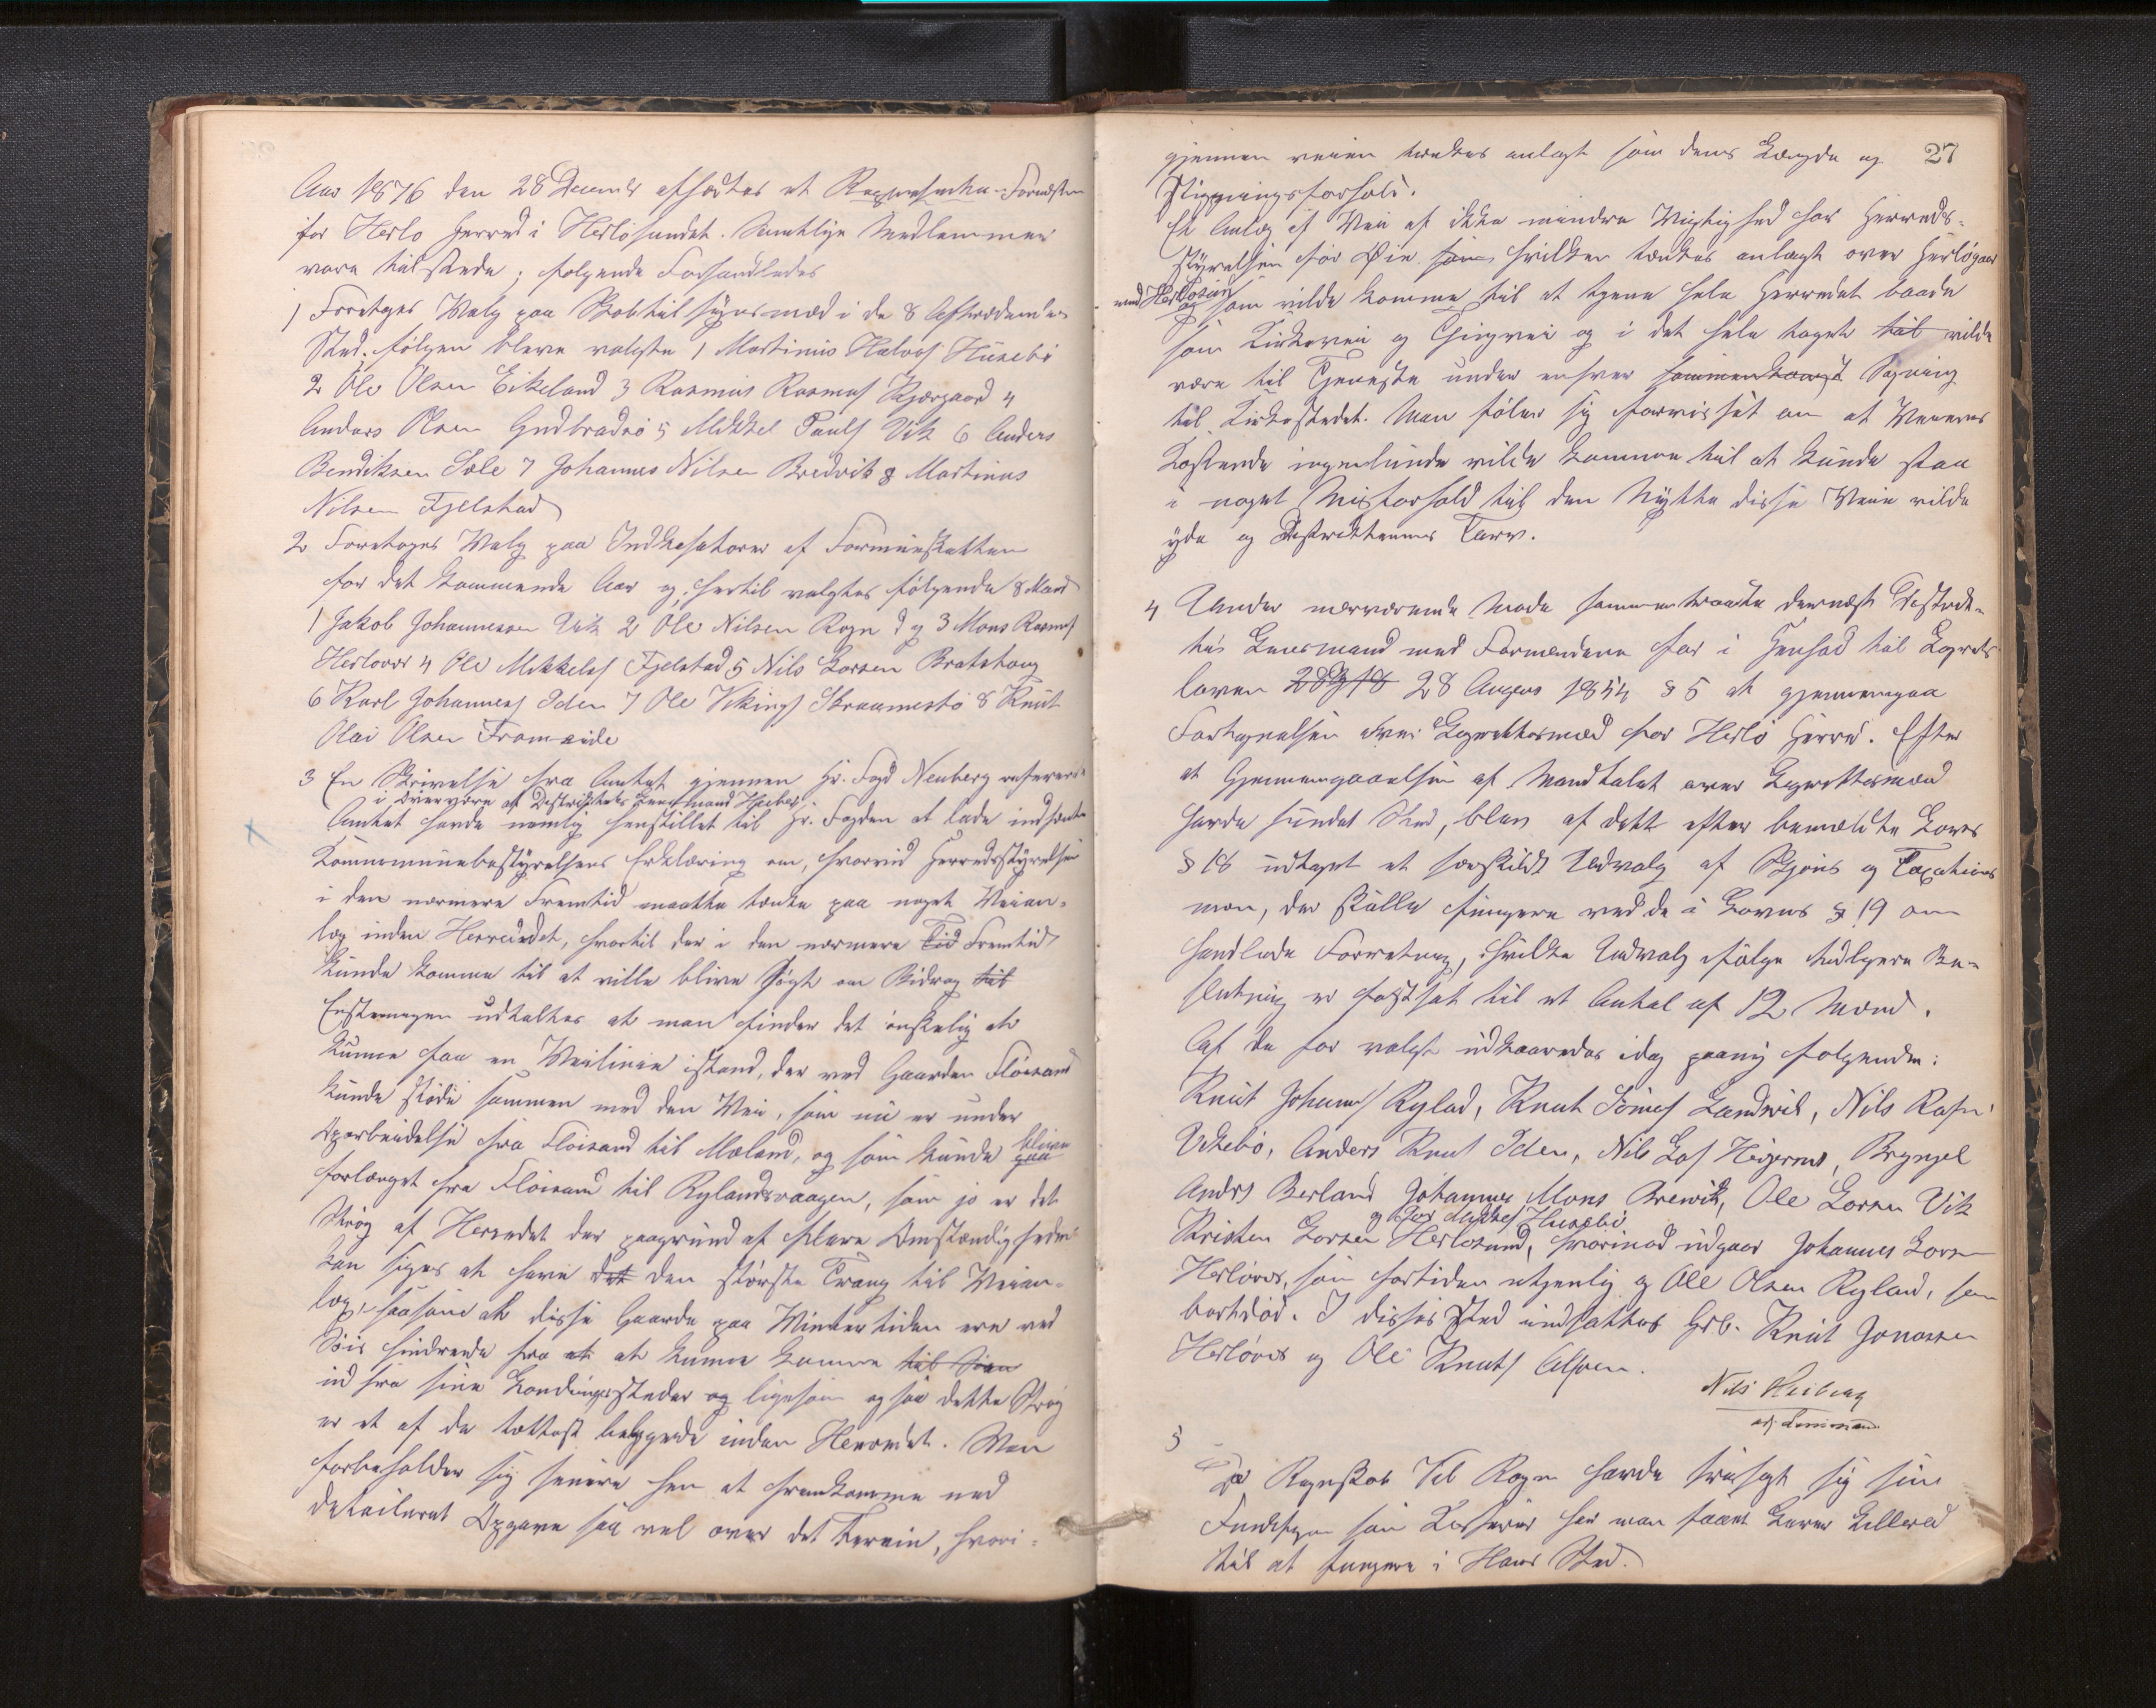 Aar 1876 den 28 Decembr afholdtes et Repræsentan-Formøde
for Herlø Herred i Herløsundet. Samtlige Medlemmer
vare tilstede; følgende Forhandledes
1 Foretoges Valg paa Skoletilsynsmæd i de 8 Aftrædendes
Sted. følgen bleve valgte 1 Martinus Halvors Husebø
2 Ole Olsen Eikeland 3 Rasmus Rasmus Kjærgaard 4
Anders Olsen Gudbradsø 5 Mikkel Pauls Vik 6 Anders
Bendiksen Sæle 7 Johannes Nilsen Bredvik 8 Martinus
Nilsen Fjelstad
2 Foretoges Valg paa Indkasatorer af Formueskatten
for det kommende Aar og hertil valgtes følgende 8 Mand
1 Jakob Johannessen Vik 2 Ole Nilsen Rogn d y 3 Mons Rasmus
Herlover 4 Ole Mikkels Fjelstad 5 Nils Larsen Bratshoug
6 Karl Johannes Iden 7 Ole Vikings Straumestø 8 Knut
Olai Olsen Fromreide
3 En Skrivelse fra Amtet gjennem Hr. Fogd Neuberg refereredes
i overvære af Distriktets Lensmand Heiberg.
Amtet havde nemlig henstillet til Hr. Fogden at lade indhente
Kommunebestyrelsens Erklæring om, hvorvid Herredsstyrelsen
i den nærmere Fremtid maatte tænke paa noget Veian-
læg inden Herredet, hvortil der i den nærmere Tid Fremtid
kunde komme til at ville blive søgt om Bidrag til
Eftermeningen udtaltes at man finder det ønskelig at
kunne faa en Veilinie istand, der ved Gaarden Fløisand
kunde støde sammen med den Vei, som nu er under
Oparbeidelse fra Fløisand til Mæland, og som kunde blive
forlænget fra Fløisand til Rylandsvaagen, som jo er det
Strøg af Herredet der paagrund af flere Omstændigheder
kan siges at have det den største Trang til Veian-
læg, saasom at disse Gaarde paa Vintertiden ere ved
Iis hindrede fra at at kunne komme til Søen
ud fra sine Landingssteder og ligesom ogsaa dette Strøg
er et af de tættest bebyggede inden Herredet. Man
forbeholder sig senere hen at fremkomme med
detaileret Opgave saa vel over det Terrain, hvori-
27
gjennem veien tænkes anlagt som dens Længde og
Stigningsforhold.
Et Anlæg af Vei af ikke mindre Vigtighed har Herreds-
styrelsen for Øie som hvilken tænkes anlagt over Herløgaar
med Herløsund
og som vilde komme til at tjene hele Herredet baade
som Kirkevei og Thingvei og i det hele taget til vilde
være til Tjeneste under enhver sammenkomst Søgning
til Kirkestedet. Man føler sig forvisset om at Veienes
Kostende ingenlunde vilde komme til at kunde staa
i noget Misforhold til den Nytte disse Veie vilde
yde og Distrikternes Tarv.
4 Under nærværende Møde sammentraadte dernæst Distrik-
tets Lensmand med Formændene for i Henhold til Lagrets
loven 28 August 1854 § 5 at gjennemgaa
Fortegnelsen over Lagrettesmæd for Herlø Herred. Efter
at Gjennemgaaelsen af Mandtalet over Lagrettesmænd
havde fundet Sted, blev af dette efter bemeldte Lovs
§ 18 udtaget et særskildt Udvalg af Skjøns og Taxations
mæn, der skulle fungere ved de i Lovens § 19 om
handlede Forretning, hvilke Udvalg ifølge tidligere Be-
slutning er fastsat til et Antal af 12 Mænd.
Af de før valgte udkaaredes idag paany følgende:
Knut Johanns Rylad, Knut Simes Landvik, Nils Rasm
Uthebø, Anders Knut Iden, Nils Las Heigernes, Brynjel
Andrs Berland Johannes Mons Brewik, Ole Larsen Vik
og Per Mikkes Husebø
Kristen Larsen Herløsund, hvorimod udgaar Johannes Larsen
Herløver, som fortiden utjenlig og Ole Olsen Ryland, som
bortdød. I disses Sted indsattes Grb. Knut Jonassen
Herløver og Ole Knuts Alsen.
Nils Heiberg
adj Lensmand
5
Da Regnskab Ved Rogn havde frasagt sig sin
Funktion som Kasserer har man faaet Larer Kellerød
til at fungere i Hans Sted.